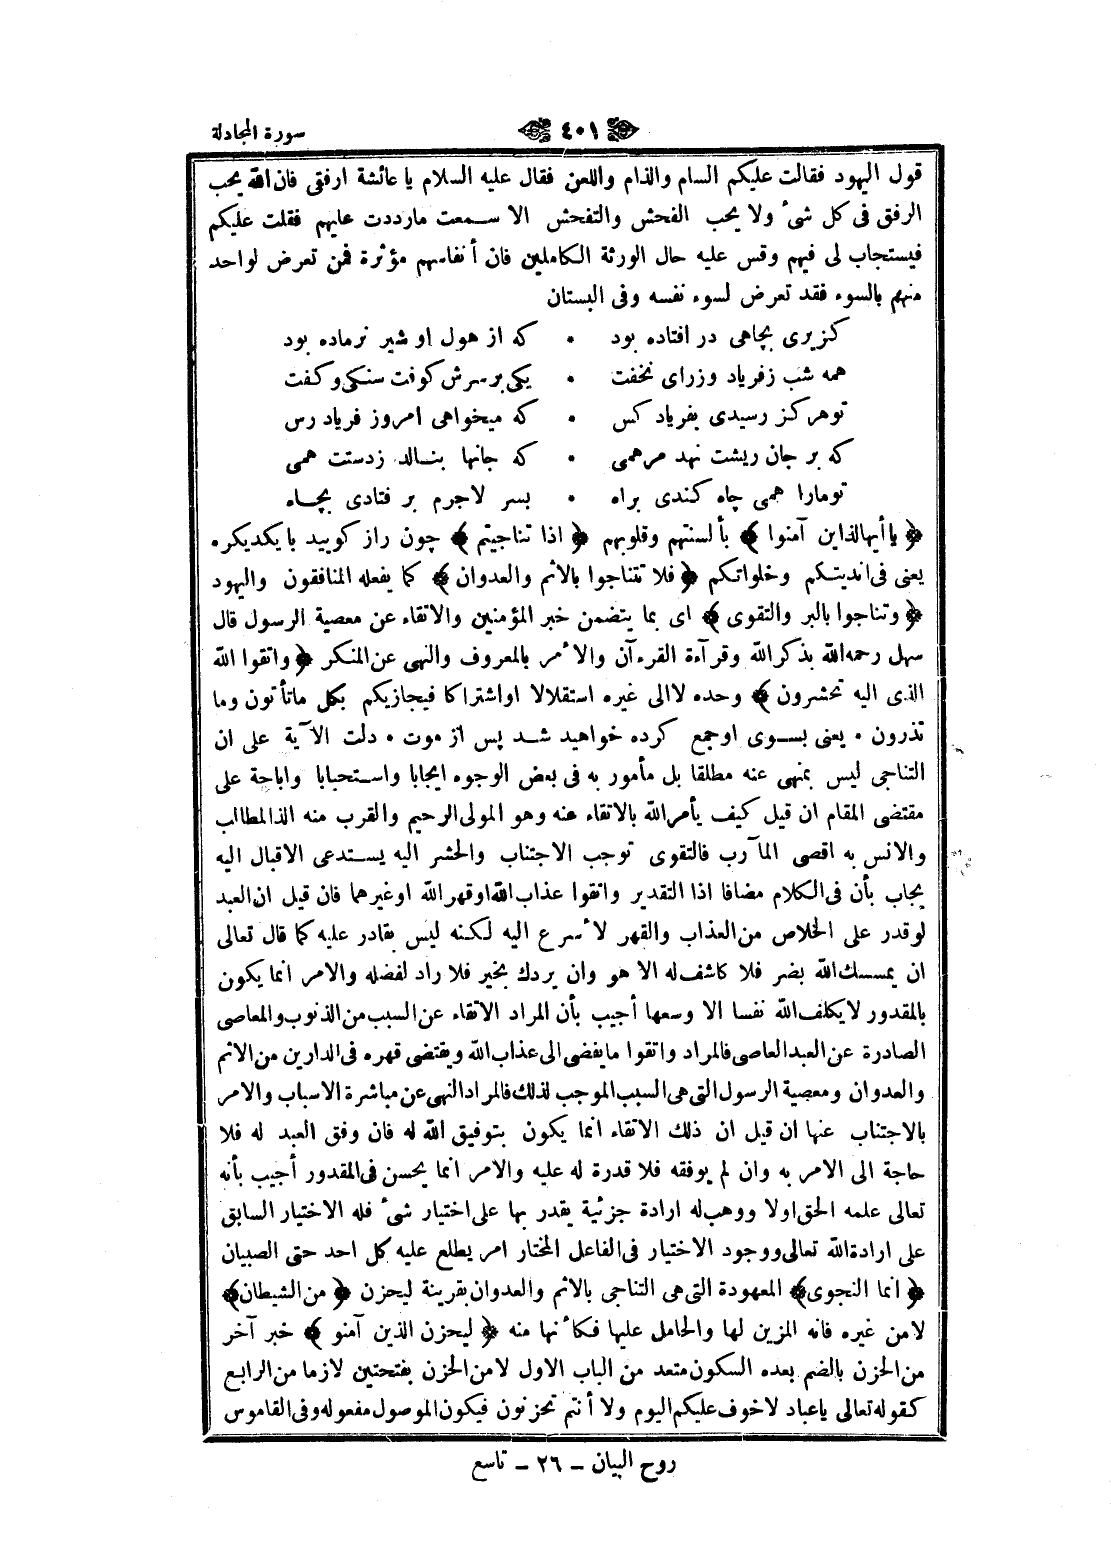 سورة المجادلة
٤٠١
قول اليهود فقالت عليكم السام والذام واللعن فقال عليه السلام يا عائشة ارفقى فان الله يحب
الرفق فى كل شىٔ ولا يحب الفحش والتفحش الا سمعت مارددت عليهم فقلت عليكم
فيستجاب لى فيهم وقس عليه حال الورثة الكاملين فان أنفاسهم مؤثرة فمن تعرض لواحد
منهم بالسوء فقد تعرض لسوء نفسه وفى البستان
كزيرى بچاهى در افتاده بود • كه از هول او شير نرماده بود
همه شب زفرياد وزراى نخفت • يكى بر سرش كوفت سنكى وكفت
توهركز رسيدى بفرياد كس • كه ميخواهى امروز فرياد رس
كه بر جان ريشت نهد مرهمى • كه جانها بنالد زدستت همى
تومارا همى چاه كندى براه • بسر لاجرم بر فتادى بچاه
﴿ يا أيهالذاين آمنوا ﴾ بألسنتهم وقلوبهم ﴿ اذا تناجيتم ﴾ چون راز كوييد بايكديكر •
يعنى فى انديتكم وخلواتكم ﴿ فلا تتناجوا بالاثم والعدوان ﴾ كما يفعله المنافقون واليهود
﴿ وتناجوا بالبر والتقوى ﴾ اى بما يتضمن خبر المؤمنين والاتقاء عن معصية الرسول قال
سهل رحمه الله بذكرالله وقرآءة القرءآن والأمر بالمعروف والنهى عن المنكر ﴿ واتقوا الله
الذى اليه تحشرون ﴾ وحده لاالى غيره استقلالا اواشتراكا فيجازيكم بكل ماتأتون وما
تذرون • يعنى بسوى اوجمع كرده خواهيد شد پس از موت • دلت الآية على ان
التناجى ليس بمنهى عنه مطلقا بل مأمور به فى بعض الوجوه ايجابا واستحبابا واباجة على
مقتضى المقام ان قيل كيف يأمرالله بالاتقاء عنه وهو المولى الرحيم والقرب منه الذالمطالب
والانس به اقصى المآرب فالتقوى توجب الاجتناب والحشر اليه يستدعى الاقبال اليه
يجاب بأن فى الكلام مضافا اذا التقدير واتقوا عذاب الله اوقهر الله اوغيرهما فان قيل ان العبد
لوقدر على الخلاص من العذاب والقهر لأسرع اليه لكنه ليس بقادر عليه كما قال تعالى
ان يمسسك الله بضر فلا كاشف له الا هو وان يردك بخير فلا راد لفضله والامر انما يكون
بالمقدور لايكلف الله نفسا الا وسعها أجيب بأن المراد الاتقاء عن السبب من الذنوب والمعاصى
الصادرة عن العبد العاصى فالمراد واتقوا مايفضى الى عذاب الله ويقتضى قهره فى الدارين من الاثم
والعدوان ومعصية الرسول التى هى السبب الموجب لذلك فالمراد النهى عن مباشرة الاسباب والامر
بالاجتناب عنها ان قيل ان ذلك الاتقاء انما يكون بتوفيق الله له فان وفق العبد له فلا
حاجة الى الامر به وان لم يوفقه فلا قدرة له عليه والامر انما يحسن فى المقدور أجيب بأنه
تعالى علمه الحق اولا ووهب له ارادة جزئية يقدر بها على اختيار شىٔ فله الاختيار السابق
على ارادة الله تعالى ووجود الاختيار فى الفاعل المختار امر يطلع عليه كل احد حتى الصبيان
﴿ انما النجوى ﴾ المعهودة التى هى التناجى بالاثم والعدوان بقرينة ليحزن ﴿ من الشيطان ﴾
لامن غيره فانه المزين لها والحامل عليها فكأنها منه ﴿ ليحزن الذين آمنو ﴾ خبر آخر
من الحزن بالضم بعده السكون متعد من الباب الاول لامن الحزن بفتحتين لازما من الرابع
كقوله تعالى ياعباد لاخوف عليكم اليوم ولا أنتم تحزنون فيكون الموصول مفعوله وفى القاموس
روح البيان – ٢٦ – تاسع